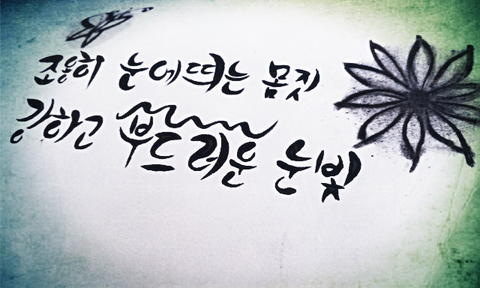 조용히 눈에띄는 몸짓
강하고 부드러운 눈빛